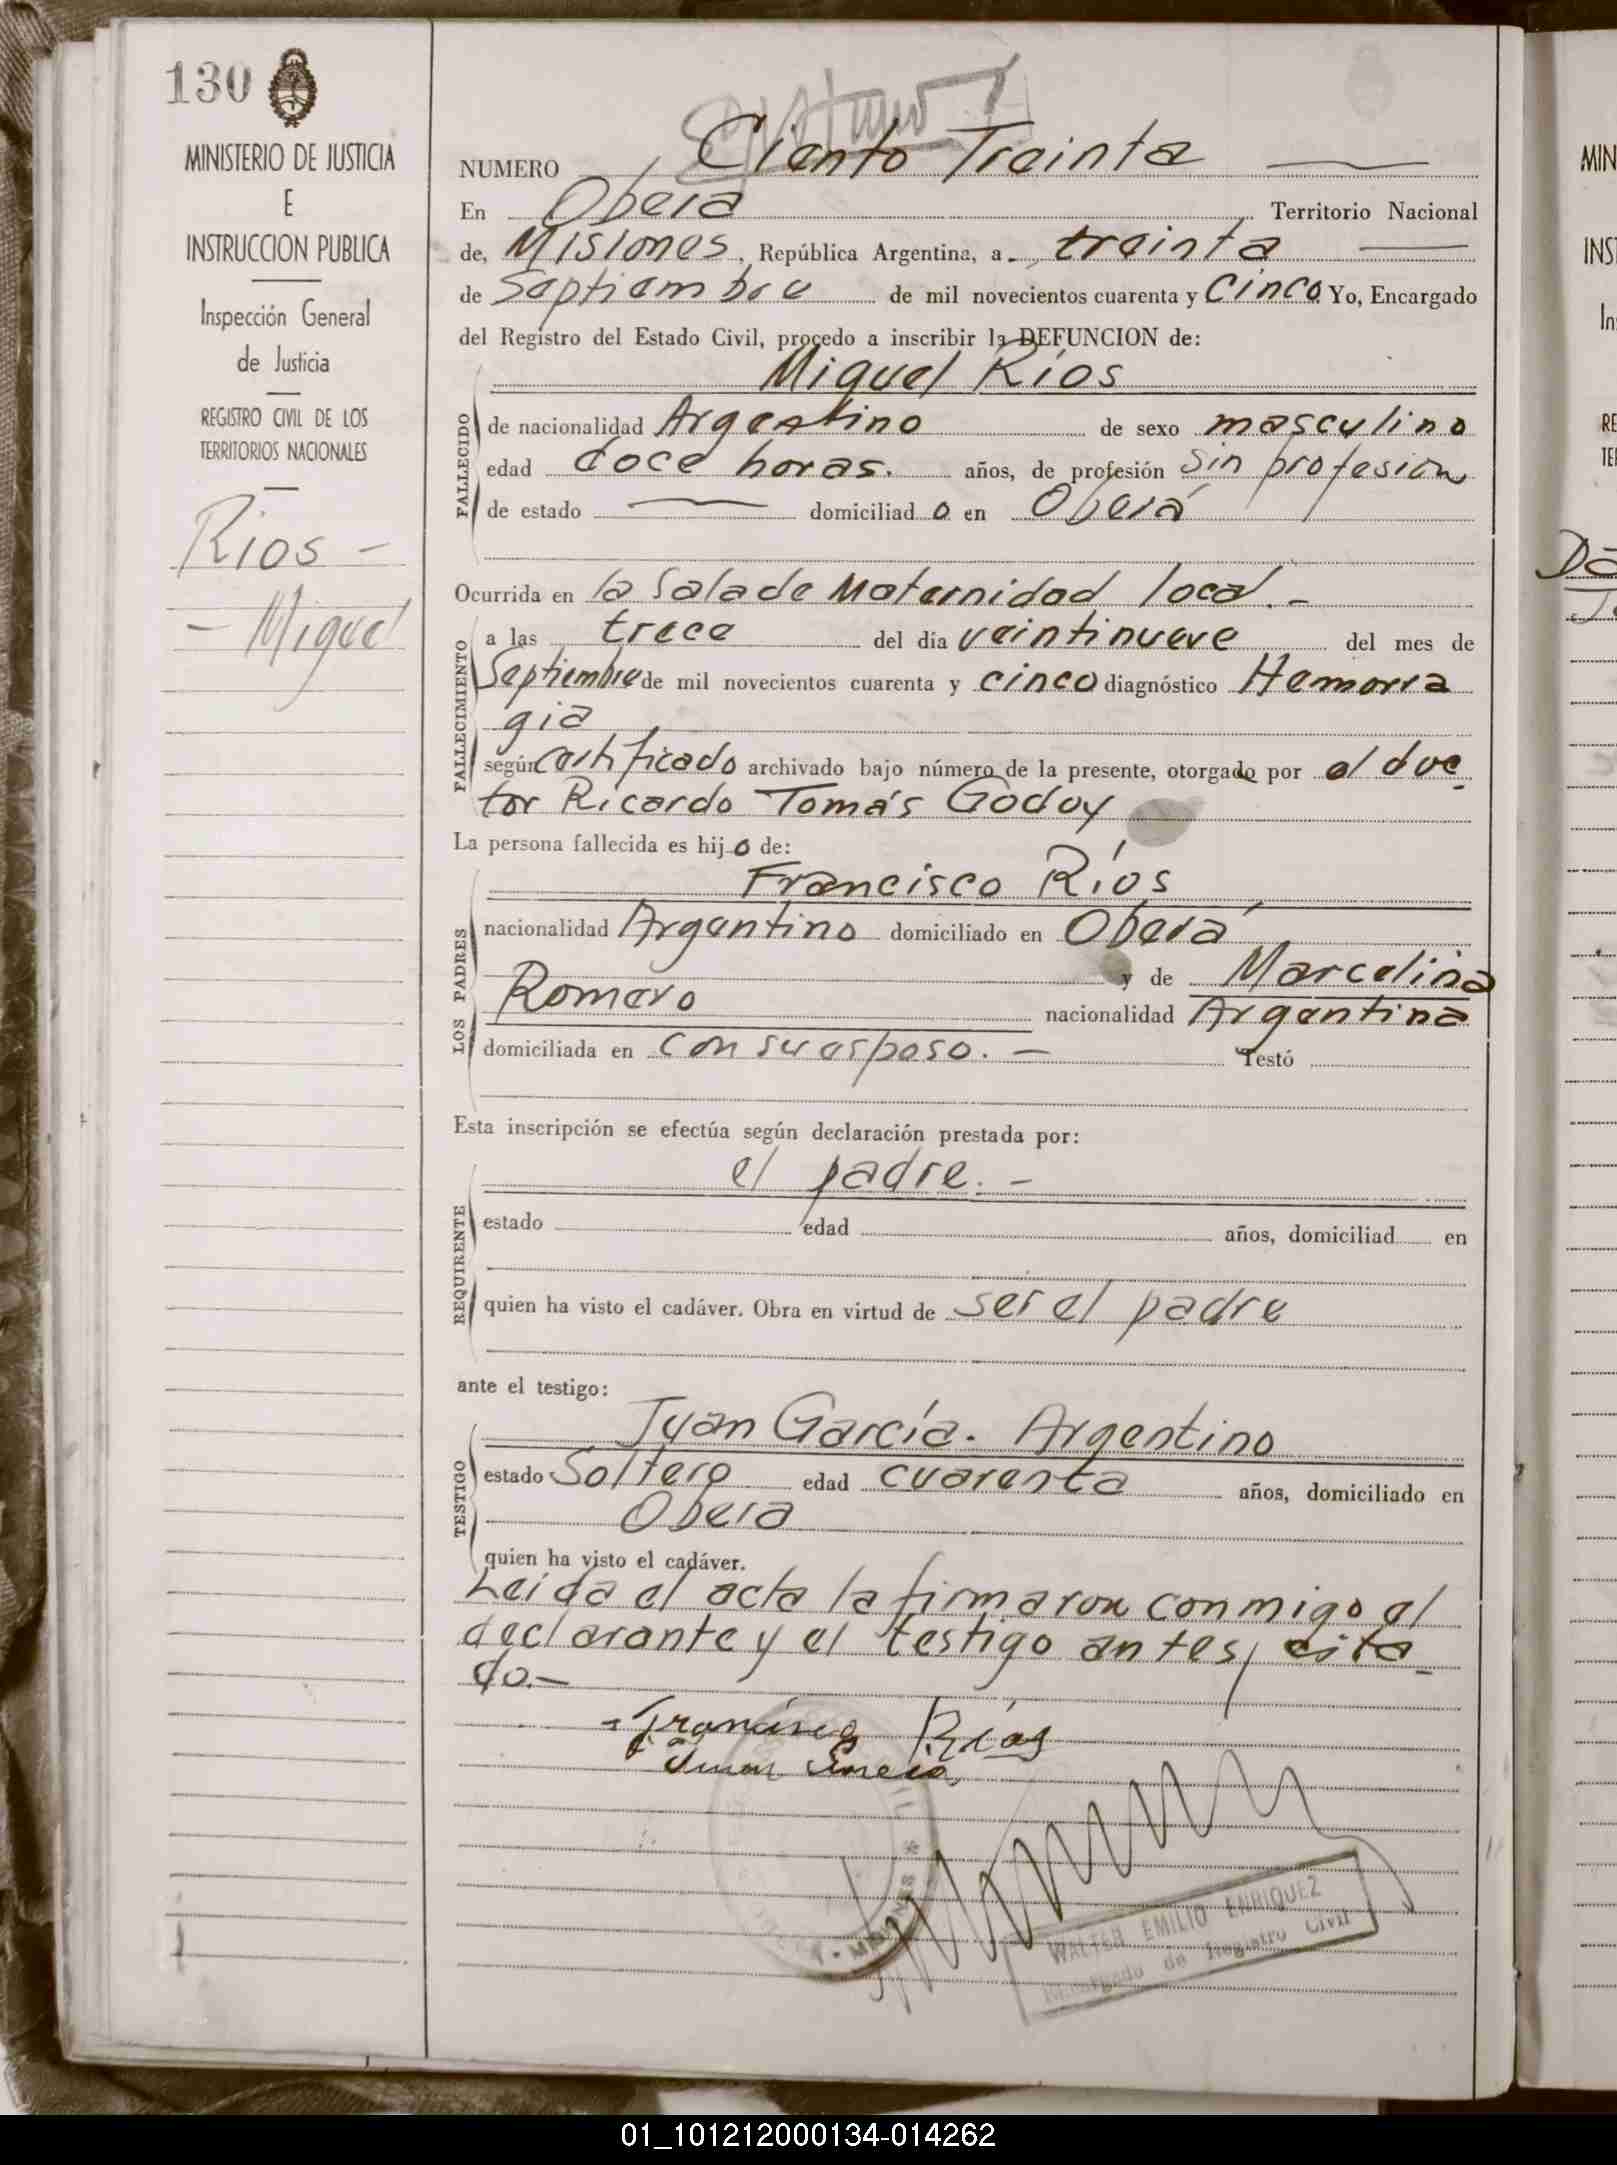 130
MINISTERIO DE JUSTICIA
E
INSTRUCCION PUBLICA
Inspección General
de Justicia
REGISTRO CIVIL DE LOS
TERRITORIOS NACIONALES
Rios -
- Miguel
NUMERO Ciento Treinta
En Obera Territorio Nacional
de, Misiones, República Argentina, a treinta
de Septiembre de mil novecientos cuarenta y cinco Yo, Encargado
del Registro del Estado Civil, procedo a inscribir la DEFUNCION de:
Miguel Ríos
FALLECIDO
de nacionalidad Argentino de sexo masculino
edad doce horas. años, de profesión Sin profesion
de estado domiciliad o en Oberá
Ocurrida en la Sala de Maternidad local. -
FALLECIMIENTO
a las trece del día veintinueve del mes de
Septiembre de mil novecientos cuarenta y cinco diagnóstico Hemorra
gia
según certificado archivado bajo número de la presente, otorgado por el doc-
tor Ricardo Tomás Godoy
La persona fallecida es hij o de:
LOS PADRES
Francisco Ríos
nacionalidad Argentino domiciliado en Oberá
y de Marcelina
Romero nacionalidad Argentina
domiciliada en con su esposo. - Testó
Esta inscripción se efectúa según declaración prestada por:
REQUIRENTE
el padre. -
estado edad años, domiciliad en
quien ha visto el cadáver. Obra en virtud de ser el padre
ante el testigo:
TESTIGO
Juan García. Argentino
estado Soltero edad cuarenta años, domiciliado en
Obera
quien ha visto el cadáver.
Leida el acta la firmaron conmigo el
declarante y el testigo antes, cita-
do.-
Francisco Ríos
Juan Garcia
MISIONES
WALTER EMILIO ENRIQUEZ
Encargado de Registro Civil
MIN
INS
In
RE
TE
01_101212000134-014262